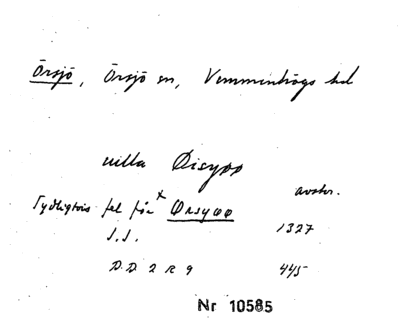 Örsjö, Örsjö sn, Vemmenhögs hd
villa Øisyøø
avskr.
Tydligtvis fel för x Ørsyøø
S.S. 1327
D.D. 2 R 9 445
Nr 10585